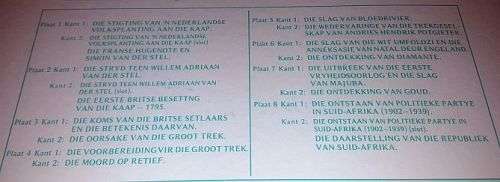 Plaat 1 Kant 1: DIE STIGTING VAN 'N NEDERLANDSE
VOLKSPLANTING AAN DIE KAAP.
Kant 2: DIE STIGTING VAN 'N NEDERLANDSE
VOLKSPLANTING AAN DIE KAAP (slot)
DIE FRANSE HUGENOTE EN
SIMON VAN DER STEL.
Plaat 2 Kant 1: DIE STRYD TEEN WILLEM ADRIAAN
VAN DER STEL.
Kant 2: DIE STRYD TEEN WILLEM ADRIAAN VAN
DER STEL (slot).
DIE EERSTE BRITSE BESETTING
VAN DIE KAAP — 1795.
Plaat 3 Kant 1: DIE KOMS VAN DIE BRITSE SETLAARS
EN DIE BETEKENIS DAARVAN.
Kant 2: DIE OORSAKE VAN DIE GROOT TREK.
Plaat 4 Kant 1: DIE VOORBEREIDING VIR DIE GROOT TREK.
Kant 2: DIE MOORD OP RETIEF.
Plaat 5 Kant 1: DIE SLAG VAN BLOEDRIVIER.
Kant 2: DIE WEDERVARINGE VAN DIE TREKGESEL-
SKAP VAN ANDRIES HENDRIK POTGIETER.
Plaat 6 Kant 1: DIE SLAG VAN DIE WIT UMFELOZI EN DIE
ANNEKSASIE VAN NATAL DEUR ENGELAND.
Kant 2: DIE ONTDEKKING VAN DIAMANTE.
Plaat 7 Kant 1: DIE UITBREEK VAN DIE EERSTE
VRYHEIDSOORLOG EN DIE SLAG
VAN MAJUBA.
Kant 2: DIE ONTDEKKING VAN GOUD.
Plaat 8 Kant 1: DIE ONTSTAAN VAN POLITIEKE PARTYE
IN SUID-AFRIKA (1902–1939).
Kant 2: DIE ONTSTAAN VAN POLITIEKE PARTYE IN
SUID-AFRIKA (1902–1939) (slot).
DIE DAARSTELLING VAN DIE REPUBLIEK
VAN SUID-AFRIKA.